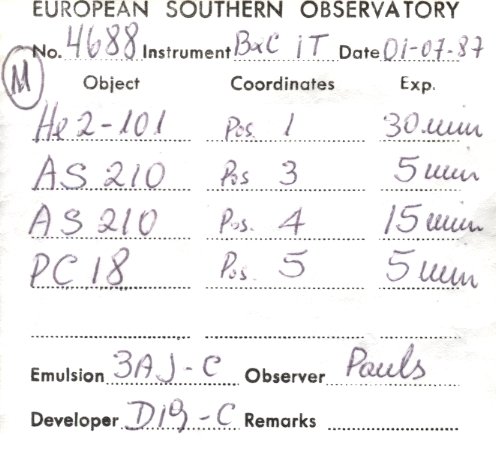 EUROPEAN SOUTHERN OBSERVATORY
No. 4688 Instrument B&C iT Date 01-07-87
M Object Coordinates Exp.
He 2-101 Pos. 1 30 min
AS 210 Pos 3 5 min
AS 210 Pos. 4 15 min
PC 18 Pos. 5 5 min
Emulsion 3AJ-C Observer Pauls
Developer D19-C Remarks